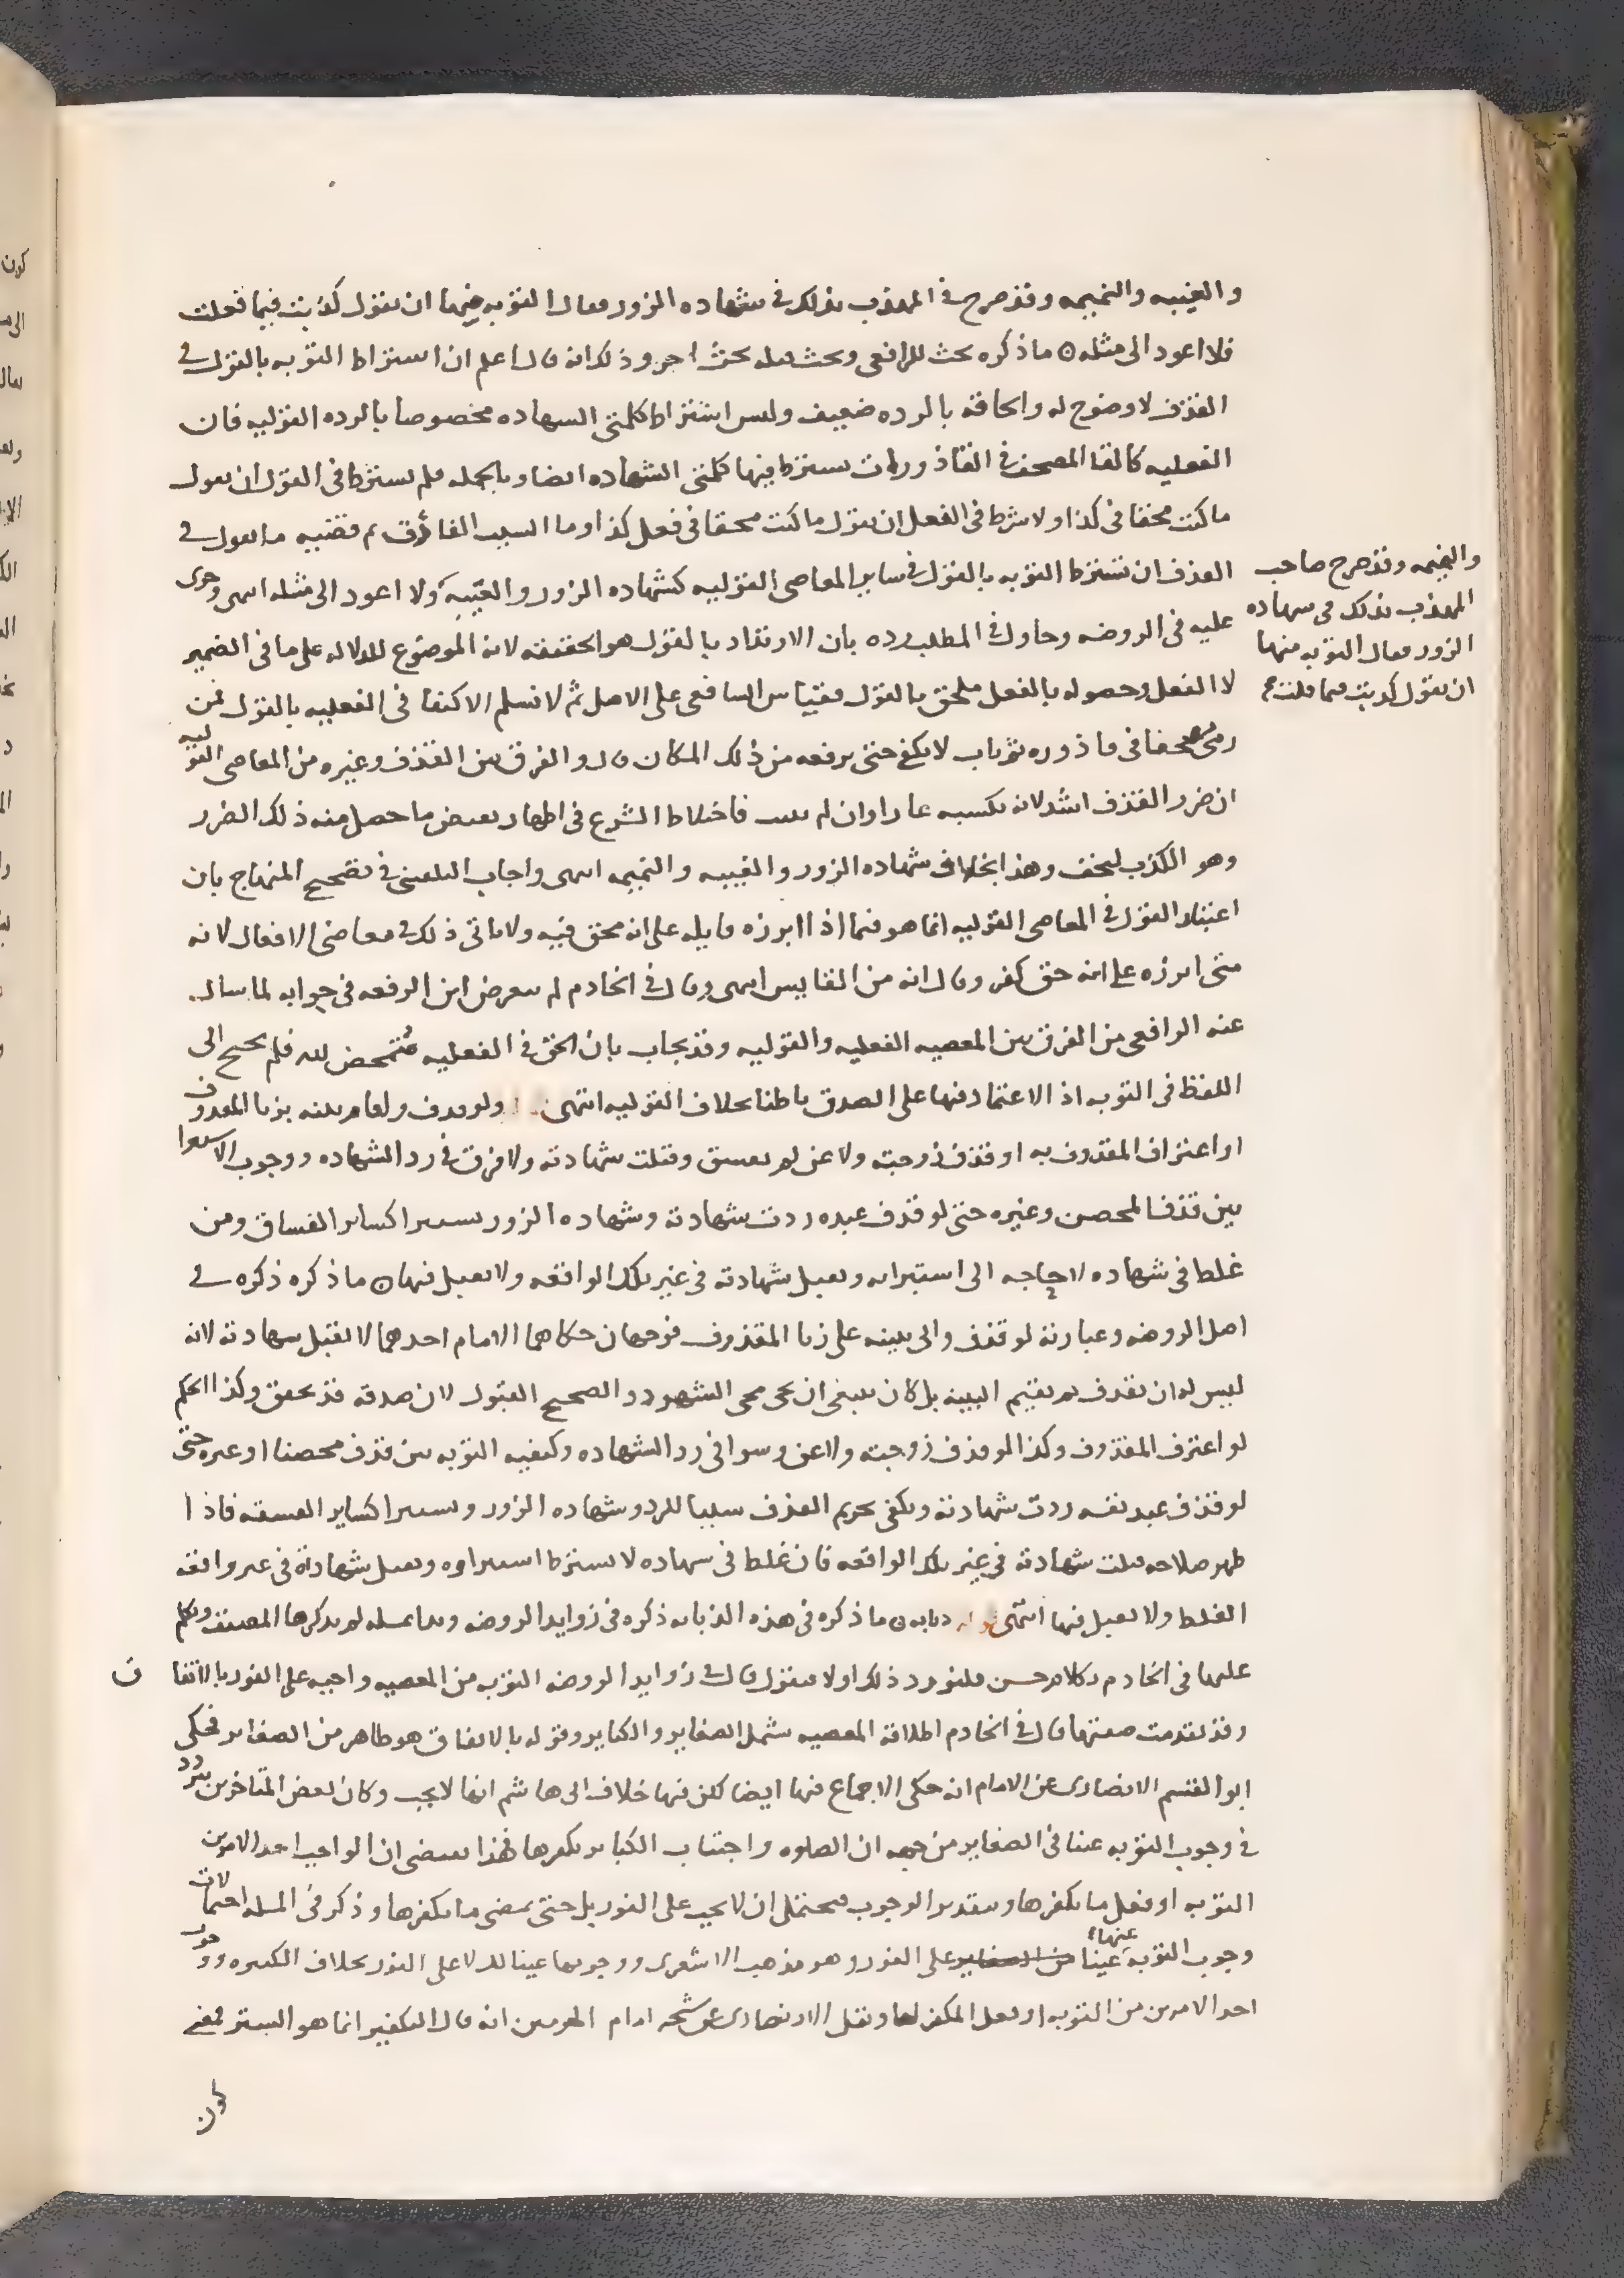 والغيبه والنميمه وقد صرح في المهذب بذلك في شهاده الزور فقال التوبه منها ان يقول كذبت فيما فعلت
فلا اعود الى مثله ما ذكره بحث للرافعي وبحث قبله بحثا اخر وذلك انه قال اعلم ان اشتراط التوبه بالقول في
القذف لا وضوح له والحاقه بالرده ضعيف وليس اشتراط كلمتي الشهاده مخصوصا بالرده القوليه فان
الفعليه كالقا المصحف في القاذورات يشترط فيها كلمتي الشهاده ايضا وبالجمله فلم يشترط في القول ان يقول
ما كنت محقا في كذا ولا شرط في الفعل ان يقول ما كنت محقا في فعل كذا وما السبب الفارق ثم قضيه ما نقول في
القذف ان نشترط التوبه بالقول في ساير المعاصي القوليه كشهاده الزور والغيبه ولا اعود الى مثله انتهى وجرى
عليه في الروضه وحاول في المطلب رده بان الارتداد بالقول هو الحقيقه لانه الموضوع للدلاله على ما في الضمير
لا الفعل وحصوله بالفعل ملحق بالقول فقياس الشافعي على الاصل ثم لا نسلم الاكتفا في الفعليه بالقول فمن
رمى مصحفا في قاذوره ثم تاب لا يكفي حتى يرفعه من ذلك المكان قال والفرق بين القذف وغيره من المعاصي القوليه
ان ضرر القذف اشد لانه يكسبه عارا وان لم يثبت فاحتاط الشرع في اظهار نقيض ما حصل منه ذلك الضرر
وهو الكذب ليخف وهذا بخلاف شهاده الزور والغيبه والنميمه انتهى واجاب البلقيني في تصحيح المنهاج بان
اعتبار القول في المعاصي القوليه انما هو فيما اذا ابرزه قايله على انه محق فيه ولا ياتي ذلك في معاصي الافعال لانه
متى ابرزه على انه حق كفر وقال انه من النفايس انتهى وقال في الخادم لم يتعرض ابن الرفعه في جوابه لما سال
عنه الرافعي من الفرق بين المعصيه الفعليه والقوليه وقد يجاب بان الحق في الفعليه متمحض لله فلم يحتج الى
اللفظ في التوبه اذ الاعتماد فيها على الصدق باطنا بخلاف القوليه انتهى ولو قذف واقام بينه بزنا المقذوف
او اعتراف المقذوف به او قذف زوجته ولاعن لم يفسق وقبلت شهادته ولا فرق في رد الشهاده ووجوب الاستبرا
بين قذف المحصن وغيره حتى لو قذف عبده ردت شهادته وشهاده الزور يستبرا كساير الفساق ومن
غلط في شهاده لا حاجه الى استبرايه وتقبل شهادته في غير تلك الواقعه ولا تقبل فيها ما ذكره ذكره في
اصل الروضه وعبارته لو قذف واتى ببينه على زنا المقذوف فوجهان حكاهما الامام احدهما لا تقبل شهادته لانه
ليس له ان يقذف ثم يقيم البينه بل كان ينبغي ان يجي مجي الشهود والصحيح القبول لان صدقه قد تحقق وكذا الحكم
لو اعترف المقذوف وكذا لو قذف زوجته ولاعن وسوا في رد الشهاده وكيفيه التوبه من قذف محصنا او غيره حتى
لو قذف عبد نفسه ردت شهادته ويكفي تحريم القذف سببا للرد وشهاده الزور ويستبرا كساير الفسقه فاذا
ظهر صلاحه قبلت شهادته في غير تلك الواقعه فان غلط في شهاده لا يشترط استبراوه وتقبل شهادته في غير واقعه
الغلط ولا تقبل فيها انتهى ما ذكره في هذه الذبابه ذكره في زوايد الروضه لم يذكرها المصنف وتكلم
عليها في الخادم بكلام حسن فلنورد ذلك اولا فنقول قال في زوايد الروضه التوبه من المعصيه واجبه على الفور بالاتفاق
وقد تقدمت صفتها قال في الخادم اطلاقه المعصيه شمل الصغاير والكباير وقوله بالاتفاق هو ظاهر من الصغاير فحكى
ابو القسم الانصاري عن الامام انه حكى الاجماع فيها ايضا لكن فيها خلاف ابي هاشم انها لا تجب وكان بعض المتاخرين يتردد
في وجوب التوبه عينا في الصغاير من جهه ان الصلوه واجتناب الكباير يكفرها فهذا يقتضي ان الواجب احد الامرين
التوبه او فعل ما يكفرها وبتقدير الوجوب فيحتمل ان لا يجب على الفور بل حتى يمضي ما يكفرها وذكر في المسله احتمالات
وجوب التوبه عنها عينا على الفور وهو مذهب الاشعري ووجوبها عينا لكن لا على الفور بخلاف الكبيره ووجوب
احد الامرين من التوبه او فعل المكفر لها ونقل الانصاري عن شيخه امام الحرمين انه قال التكفير انما هو الستر فمعنى
كون
والنميمه وقد صرح صاحب
المهذب بذلك في شهاده
الزور فقال التوبه منها
ان يقول كذبت فيما قلت